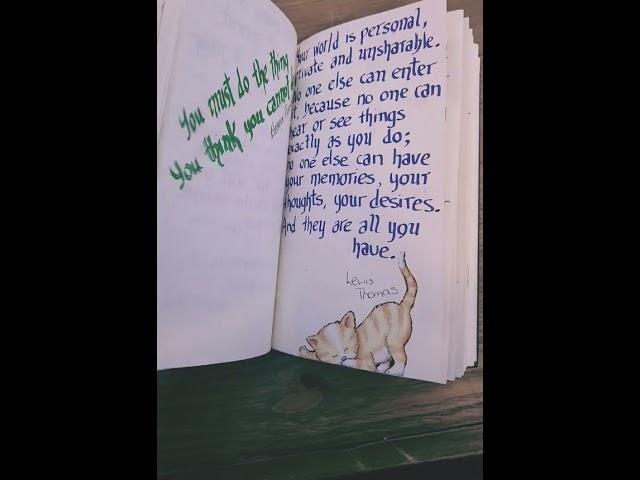 You must do the thing
You think you cannot
Your world is personal,
private and unsharable.
No one else can enter
it, because no one can
hear or see things
exactly as you do;
no one else can have
your memories, your
thoughts, your desires.
And they are all you
have.
Lewis
Thomas